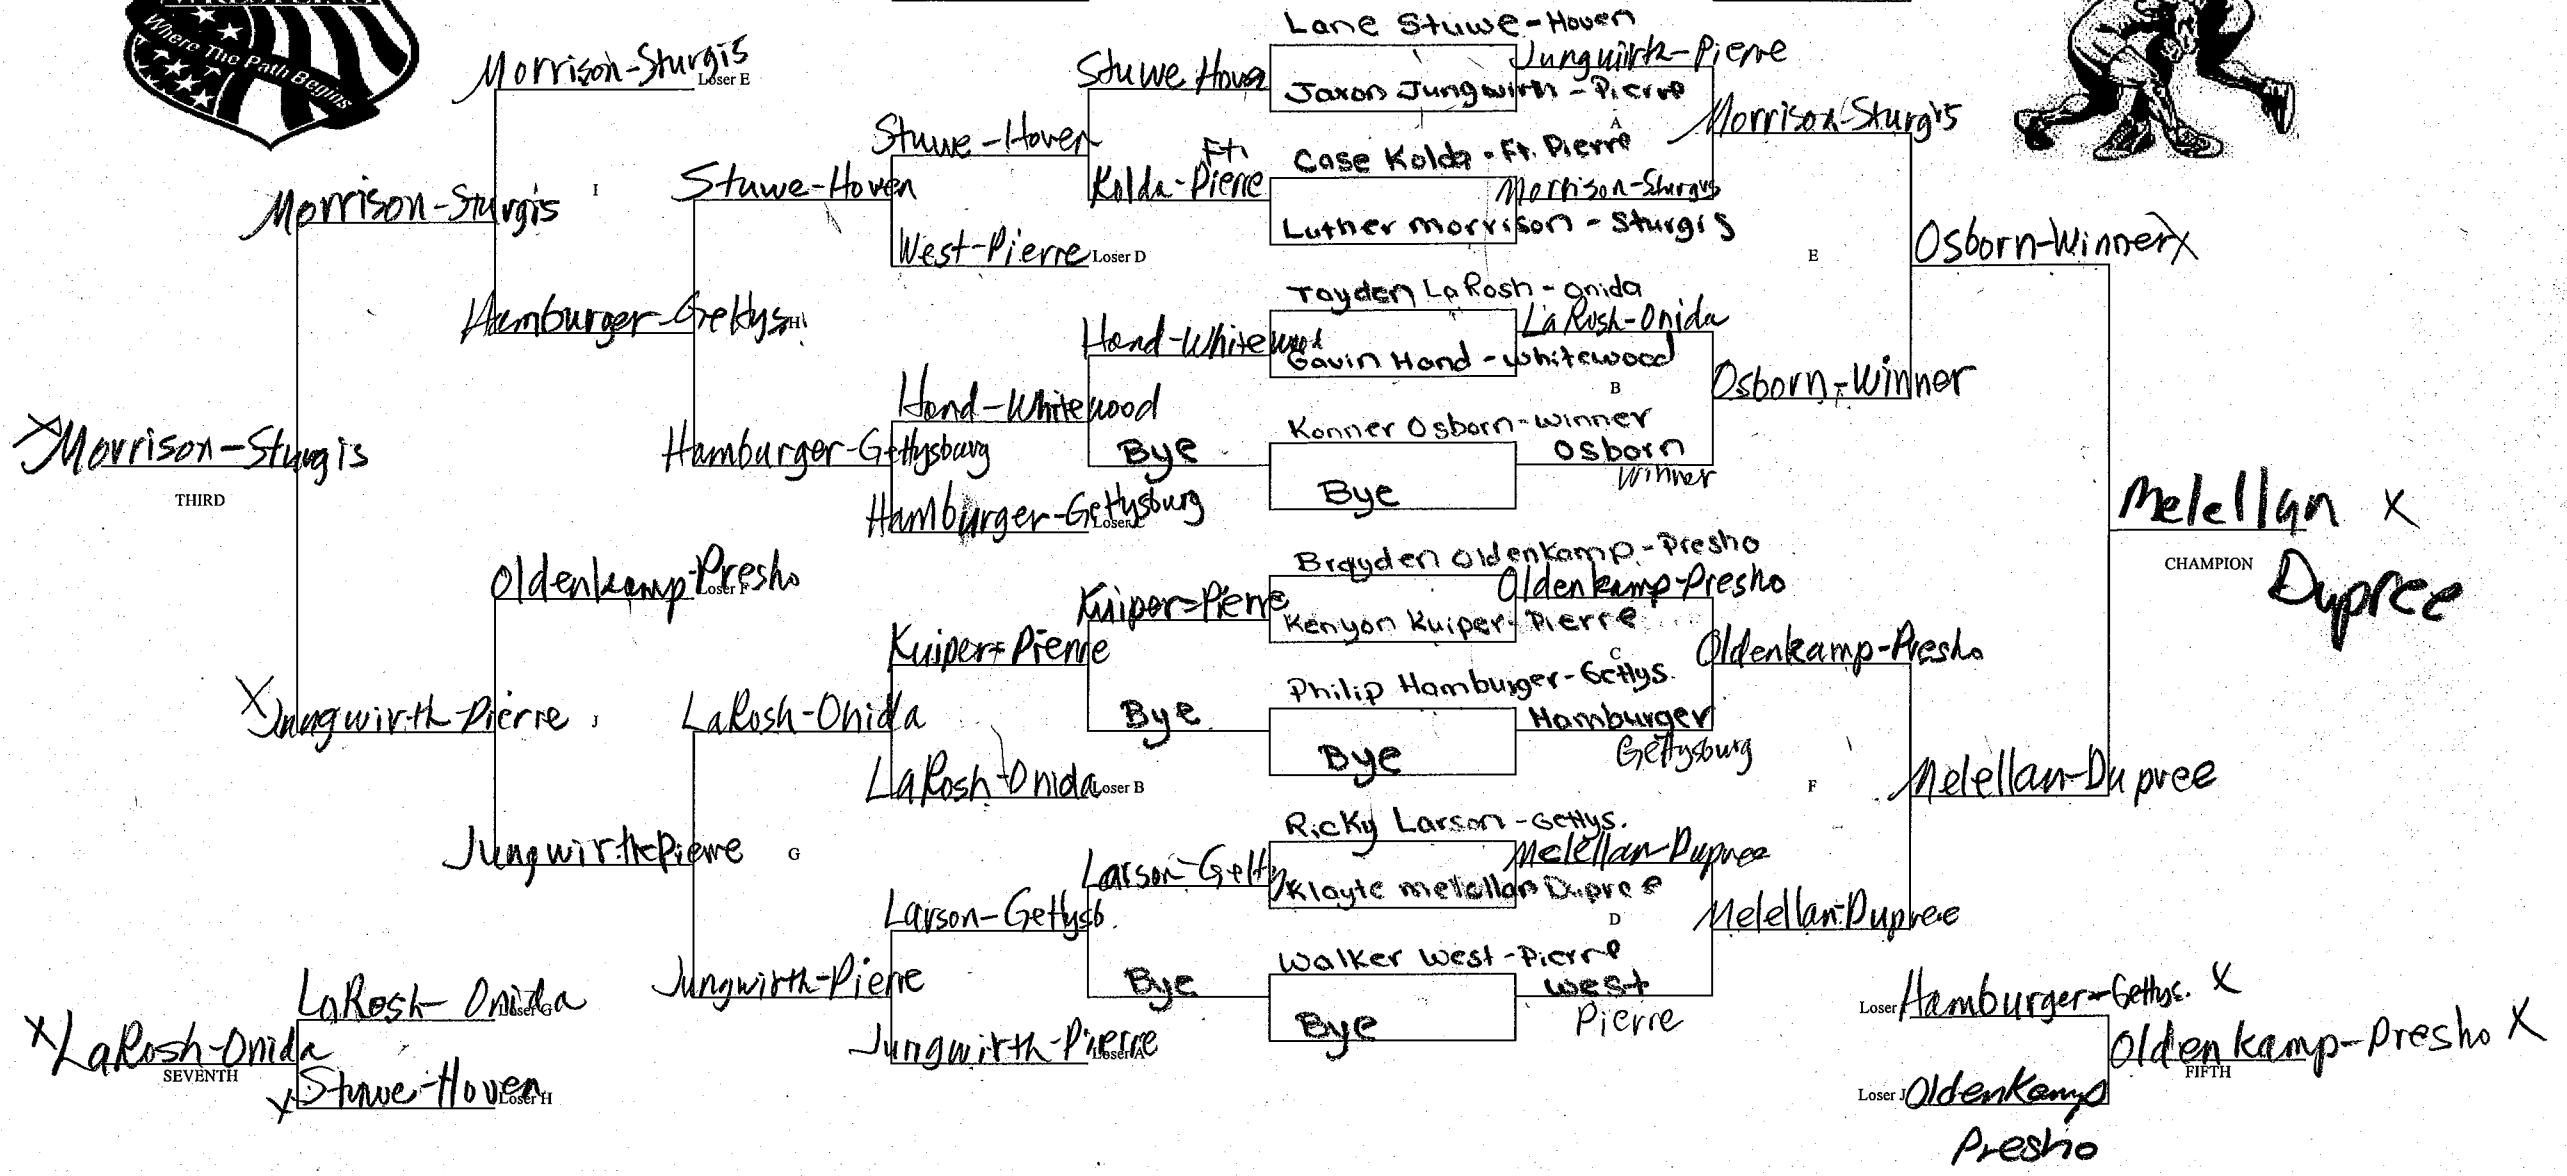 Where The Path Begins
Morrison-Sturgis
Loser E
Morrison-Sturgis
I
Hamburger-Gettys
H
Morrison-Sturgis
THIRD
Oldenkamp-Presho
Loser F
Jungwirth-Pierre
J
Jungwirth-Pierre
G
LaRosh-Onida
Loser G
LaRosh-Onida
SEVENTH
Stuwe-Hoven
Loser H
Stuwe-Hoven
Hamburger-Gettysburg
LaRosh-Onida
Jungwirth-Pierre
Stuwe-Hoven
West-Pierre
Loser D
Hand-Whitewood
Hamburger-Gettysburg
Loser
Kuiper-Pierre
LaRosh-Onida
Loser B
Larson-Gettysb.
Jungwirth-Pierre
Loser A
Stuwe Hoven
Ft.
Kolda-Pierre
Hand-Whitewood
Bye
Kuiper-Pierre
Bye
Larson-Getty
Bye
Lane Stuwe-Hoven
Jaxon Jungwirth-Pierre
A
Case Kolda-Ft. Pierre
Luther Morrison-Sturgis
Tayden LaRosh-Onida
Gavin Hand-Whitewood
B
Konner Osborn-Winner
Bye
Brayden Oldenkamp-Presho
Kenyon Kuiper-Pierre
C
Philip Hamburger-Gettys.
Bye
Ricky Larson-Gettys.
Klayte Melellan Dupree
D
Walker West-Pierre
Bye
Jungwirth-Pierre
Morrison-Sturgis
LaRosh-Onida
Osborn
Winner
Oldenkamp-Presho
Hamburger
Gettysburg
Melellan-Dupree
West
Pierre
Morrison-Sturgis
E
Osborn-Winner
Oldenkamp-Presho
F
Melellan-Dupree
Osborn-Winner X
Melellan-Dupree
Melellan X
CHAMPION
Dupree
Loser
Hamburger-Gettys. X
Oldenkamp-Presho X
FIFTH
Loser J
Oldenkamp
Presho